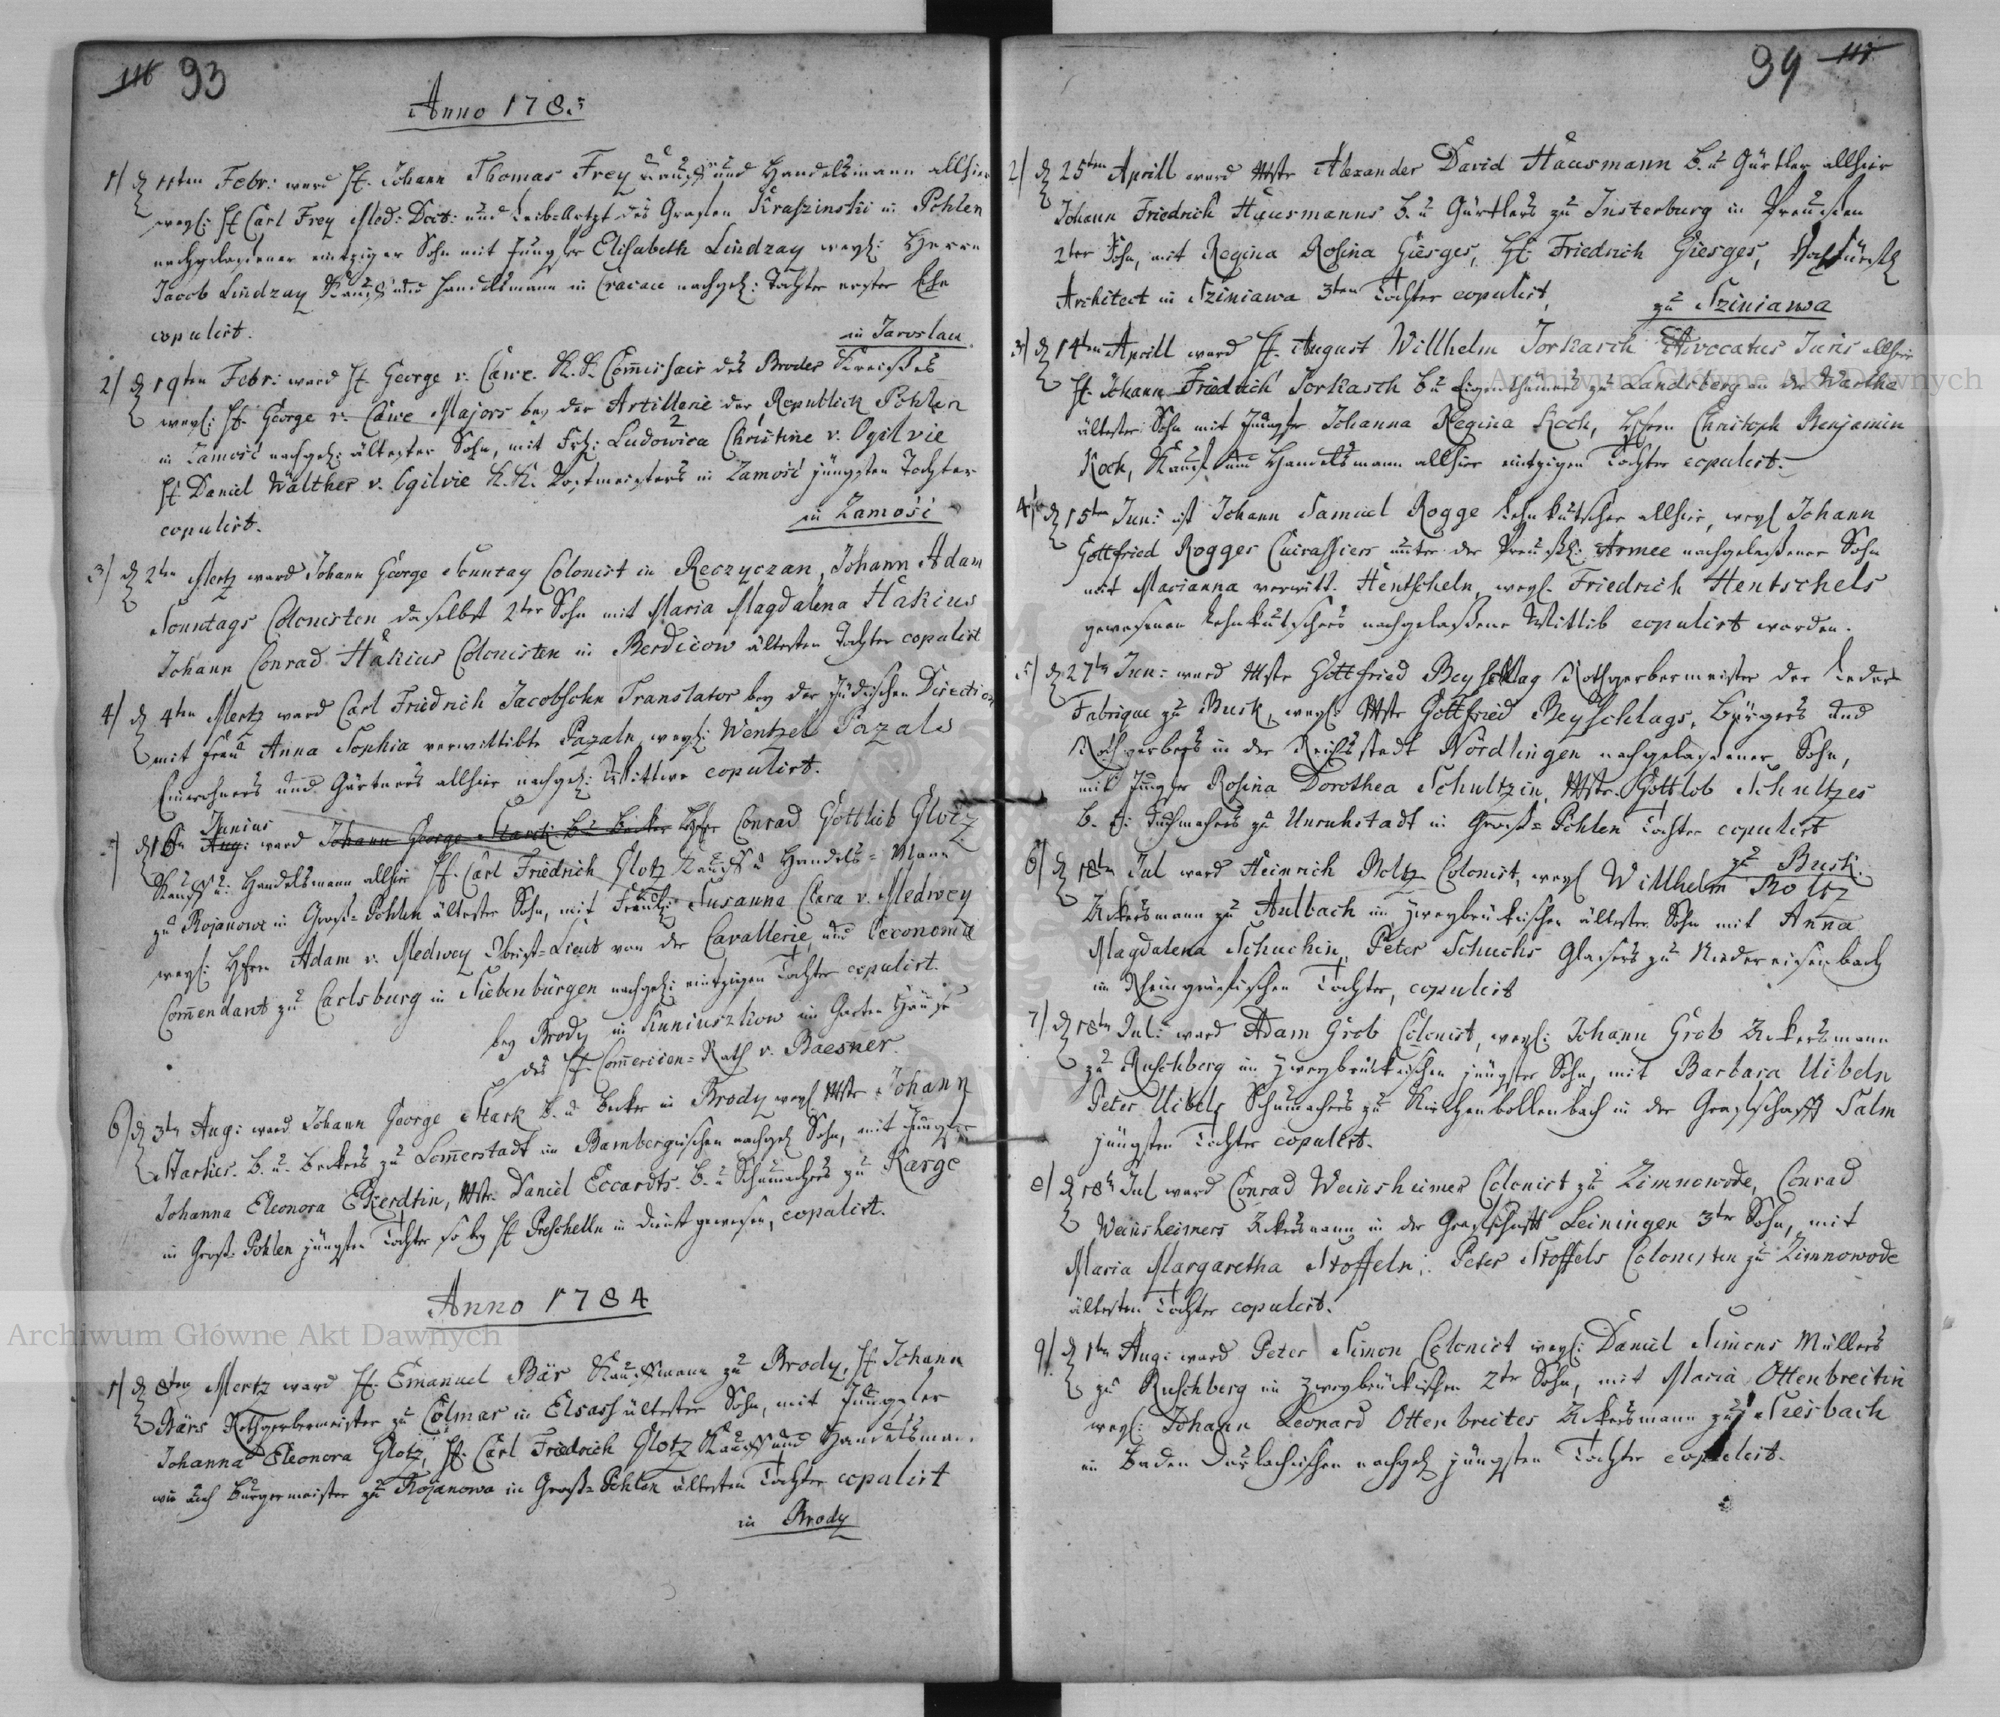 116 93
Anno 1783
1) d 11ten Febr: ward H. Johann Thomas Frey Kauff und Handelsmann allhier
weyl: H Carl Frey Med: Doct: und Leib-Artzt des Grafen Kraszinski in Pohlen
nachgelaßener eintziger Sohn mit Jungfer Elisabeth Lindzay weyl: Herrn
Jacob Lindzay Kauff und Handelsmann in Cracau nachgel: Tochter erster Ehe
copulirt.
in Jaroslau
2) d 19ten Febr: ward H. George v. Cawe K. K. Com̄issair des Broder Kreißes
weyl: H. George v. Cawe Majors bey der Artillerie der Republick Pohlen
in Zamosć nachgel: ältester Sohn, mit Frl: Ludowica Christine v. Ogilvie
H. Daniel Walther v. Ogilvie K. K. Postmeisters in Zamosć jüngsten Tochter
copulirt.
in Zamosć
3) d 2ten Mertz ward Johann George Sonntag Colonist in Reczyczan, Johann Adam
Sonntags Colonisten daselbst 2ter Sohn mit Maria Magdalena Hakius
Johann Conrad Hakius Colonisten in Berdicow ältesten Tochter copulirt
4) d 4ten Mertz ward Carl Friedrich Jacobsohn Translator bey der Jüdischen Direction
mit Frau Anna Sophia verwittibte Pazaln, weyl: Wentzel Pazals
Einwohners und Gärtners allhier nachgel: Wittwe copulirt.
Junius
d 16n Aug: ward Johann George Starck B. u Becker Hfr Conrad Gottlieb Glotz
Kauff u: Handelsmann allhier H. Carl Friedrich Glotz Kauff u Handels-Mann
zu Rojanowo in Groß-Pohlen ältester Sohn, mit Fräul: Susanna Clara v. Medwey
weyl: Hfrn Adam v. Medwey Obrist-Lieut von der Cavallerie, und Oeconomie
Com̄endant zu Carlsburg in Siebenbürgen nachgel: eintzigen Tochter copulirt.
bey Brody in Kuniuszkow im Garten Hause
des H. Com̄ercien-Rath v. Baesner.
6) d 3ten Aug: ward Johann George Stark B. u Becker in Brody weyl Mstr Johann
Starkes. B. u. Beckers zu Lom̄erstadt im Bambergischen nachgel Sohn, mit Jungfer
Johanna Eleonora Ekerdtin, Mstr. Daniel Eccardts. B. u Schumachers zu Karge
in Groß-Pohlen jüngsten Tochter so bey H Preschelln in Dienst gewesen, copulirt.
Anno 1784
1) d 8ten Mertz ward H. Emanuel Bär Kauffmann zu Brody, H. Johann
Bärs Rothgerbermeister zu Colmar in Elsass ältester Sohn, mit Jungfer
Johanna Eleonora Glotz, H. Carl Friedrich Glotz Kauff und Handelsmann
wie auch Burgermeister zu Rojanowo in Groß-Pohlen ältesten Tochter copulirt
in Brody
94 117
2) d 25ten Aprill ward Mstr Alexander David Hausmann B. u Gürtler allhier
Johann Friedrich Hausmanns B. u Gürtlers zu Insterburg in Preußen
2ter Sohn, mit Regina Rosina Giesges, H. Friedrich Giesges, Hochfürstl
Architect in Sziniawa 3ten Tochter copulirt,
zu Sziniawa
3) d 14ten Aprill ward H. August Willhelm Jorkasch Advocatus Juris allhier
H. Johann Friedrich Jorkasch B u Eigenthümers zu Landsberg an der Wartha
ältester Sohn mit Jungfer Johanna Regina Koch, Hfrn Christoph Benjamin
Koch, Kauff und Handelsmann allhier eintzigen Tochter copulirt.
4) d 15ten Jun: ist Johann Samuel Rogge Lehnkutscher allhier, weyl Johann
Gottfried Rogges Cuirassiers unter der Preußl: Armee nachgelaßener Sohn
mit Marianna verwitt. Hentscheln, weyl. Friedrich Hentschels
gewesenen Lehnkutschers nachgelaßene Wittib copulirt worden.
5) d. 27ten Jun: ward Mstr Gottfried Beyschlag Rothgerbermeister der Leder
Fabrique zu Busk, weyl: Mstr Gottfried Beyschlags, Bürgers und
Rothgerbers in der Reichsstadt Nördlingen nachgelaßener Sohn,
mit Jungfer Rosina Dorothea Schultzin, Mstr. Gottlob Schultzes
B. u: Tuchmachers zu Unruhstadt in Groß-Pohlen Tochter copulirt
zu Busk.
6) d 18ten Jul ward Heinrich Boltz Colonist, weyl Willhelm Boltz
Ackersmann zu Aulbach im Zweybrückischen ältester Sohn mit Anna
Magdalena Schuchin, Peter Schuchs Glasers zu Niedereisenbach
im Rheingräfischen Tochter, copulirt
7) d 18ten Jul: ward Adam Grob Colonist, weyl: Johann Grob Ackersmann
zu Ruschberg im Zweybrückischen jüngster Sohn, mit Barbara Uibeln
Peter Uibels Schumachers zu Kirchenbollenbach in der Grafschafft Salm
jüngsten Tochter copulirt.
8) d 18ten Jul ward Conrad Weinsheimer Colonist zu Zimnowode, Conrad
Weinsheimers Ackersmann in der Grafschafft Leiningen 3ter Sohn, mit
Maria Margaretha Stoffeln, Peter Stoffels Colonisten zu Zimnowode
ältesten Tochter copulirt.
9) d 1ten Aug: ward Peter Simon Colonist weyl: Daniel Simons Müllers
zu Ruschberg im Zweybrückischen 2ter Sohn, mit Maria Ottenbreitin
weyl: Johann Leonard Ottenbreites Ackersmann zu Siesbach
in Baden Durlachischen nachgel jüngsten Tochter copulirt.
Archiwum Główne Akt Dawnych
Archiwum Główne Akt Dawnych